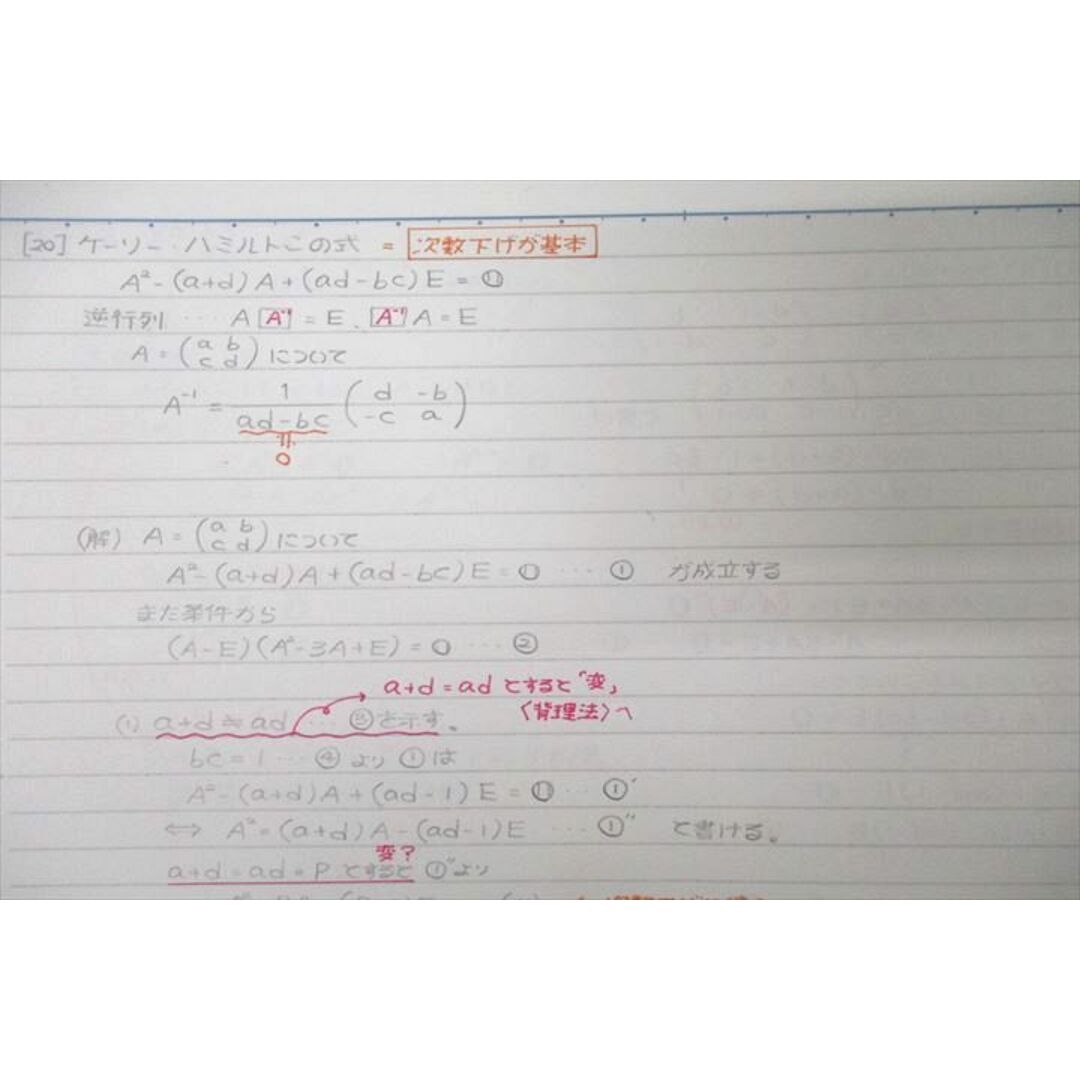 [20] ケーリー・ハミルトンの式 = 次数下げが基本
A²-(a+d)A+(ad-bc)E=O
逆行列 … A A⁻¹ = E、A⁻¹ A = E
A = (a b c d) について
A⁻¹ = 1/(ad-bc) (d -b -c a)
0
(解) A = (a b c d) について
A²-(a+d)A+(ad-bc)E=O … ① が成立する
また条件から
(A-E)(A²-3A+E)=O … ②
a+d=adとすると「変」
(1) a+d≠ad … ③を示す。 〈背理法〉へ
bc=1 … ④より①は
A²-(a+d)A+(ad-1)E=O … ①'
⇔ A²=(a+d)A-(ad-1)E … ①" と書ける。
変?
a+d=ad=Pとすると ①"より